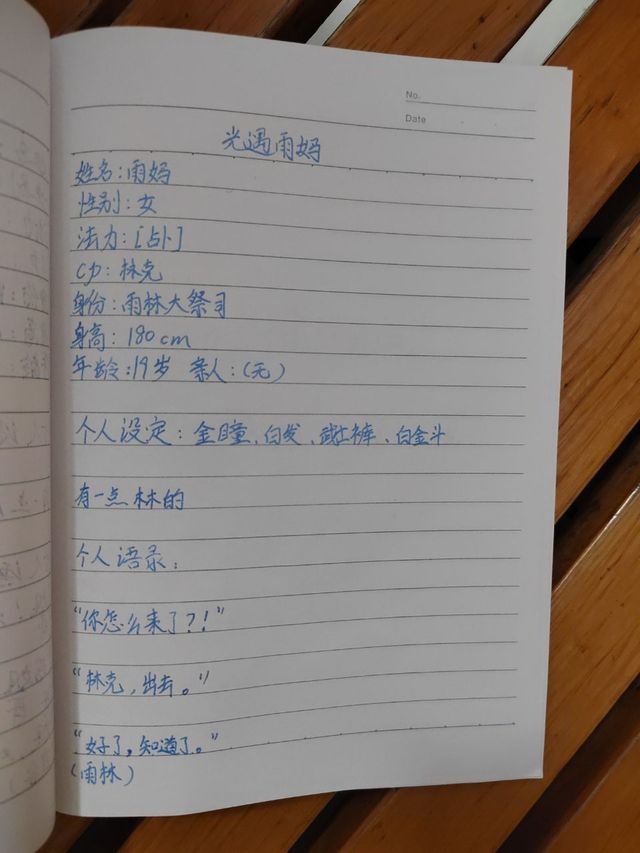 No.
Date
光遇雨妈
姓名:雨妈
性别:女
法力:[占卜]
cp:林克
身份:雨林大祭司
身高:180cm
年龄:19岁 亲人:(无)
个人设定:金瞳、白发、武士裤、白金斗
有一点林的
个人语录:
“你怎么来了?!”
“林克,出去。”
“好了,知道了。”
(雨林)